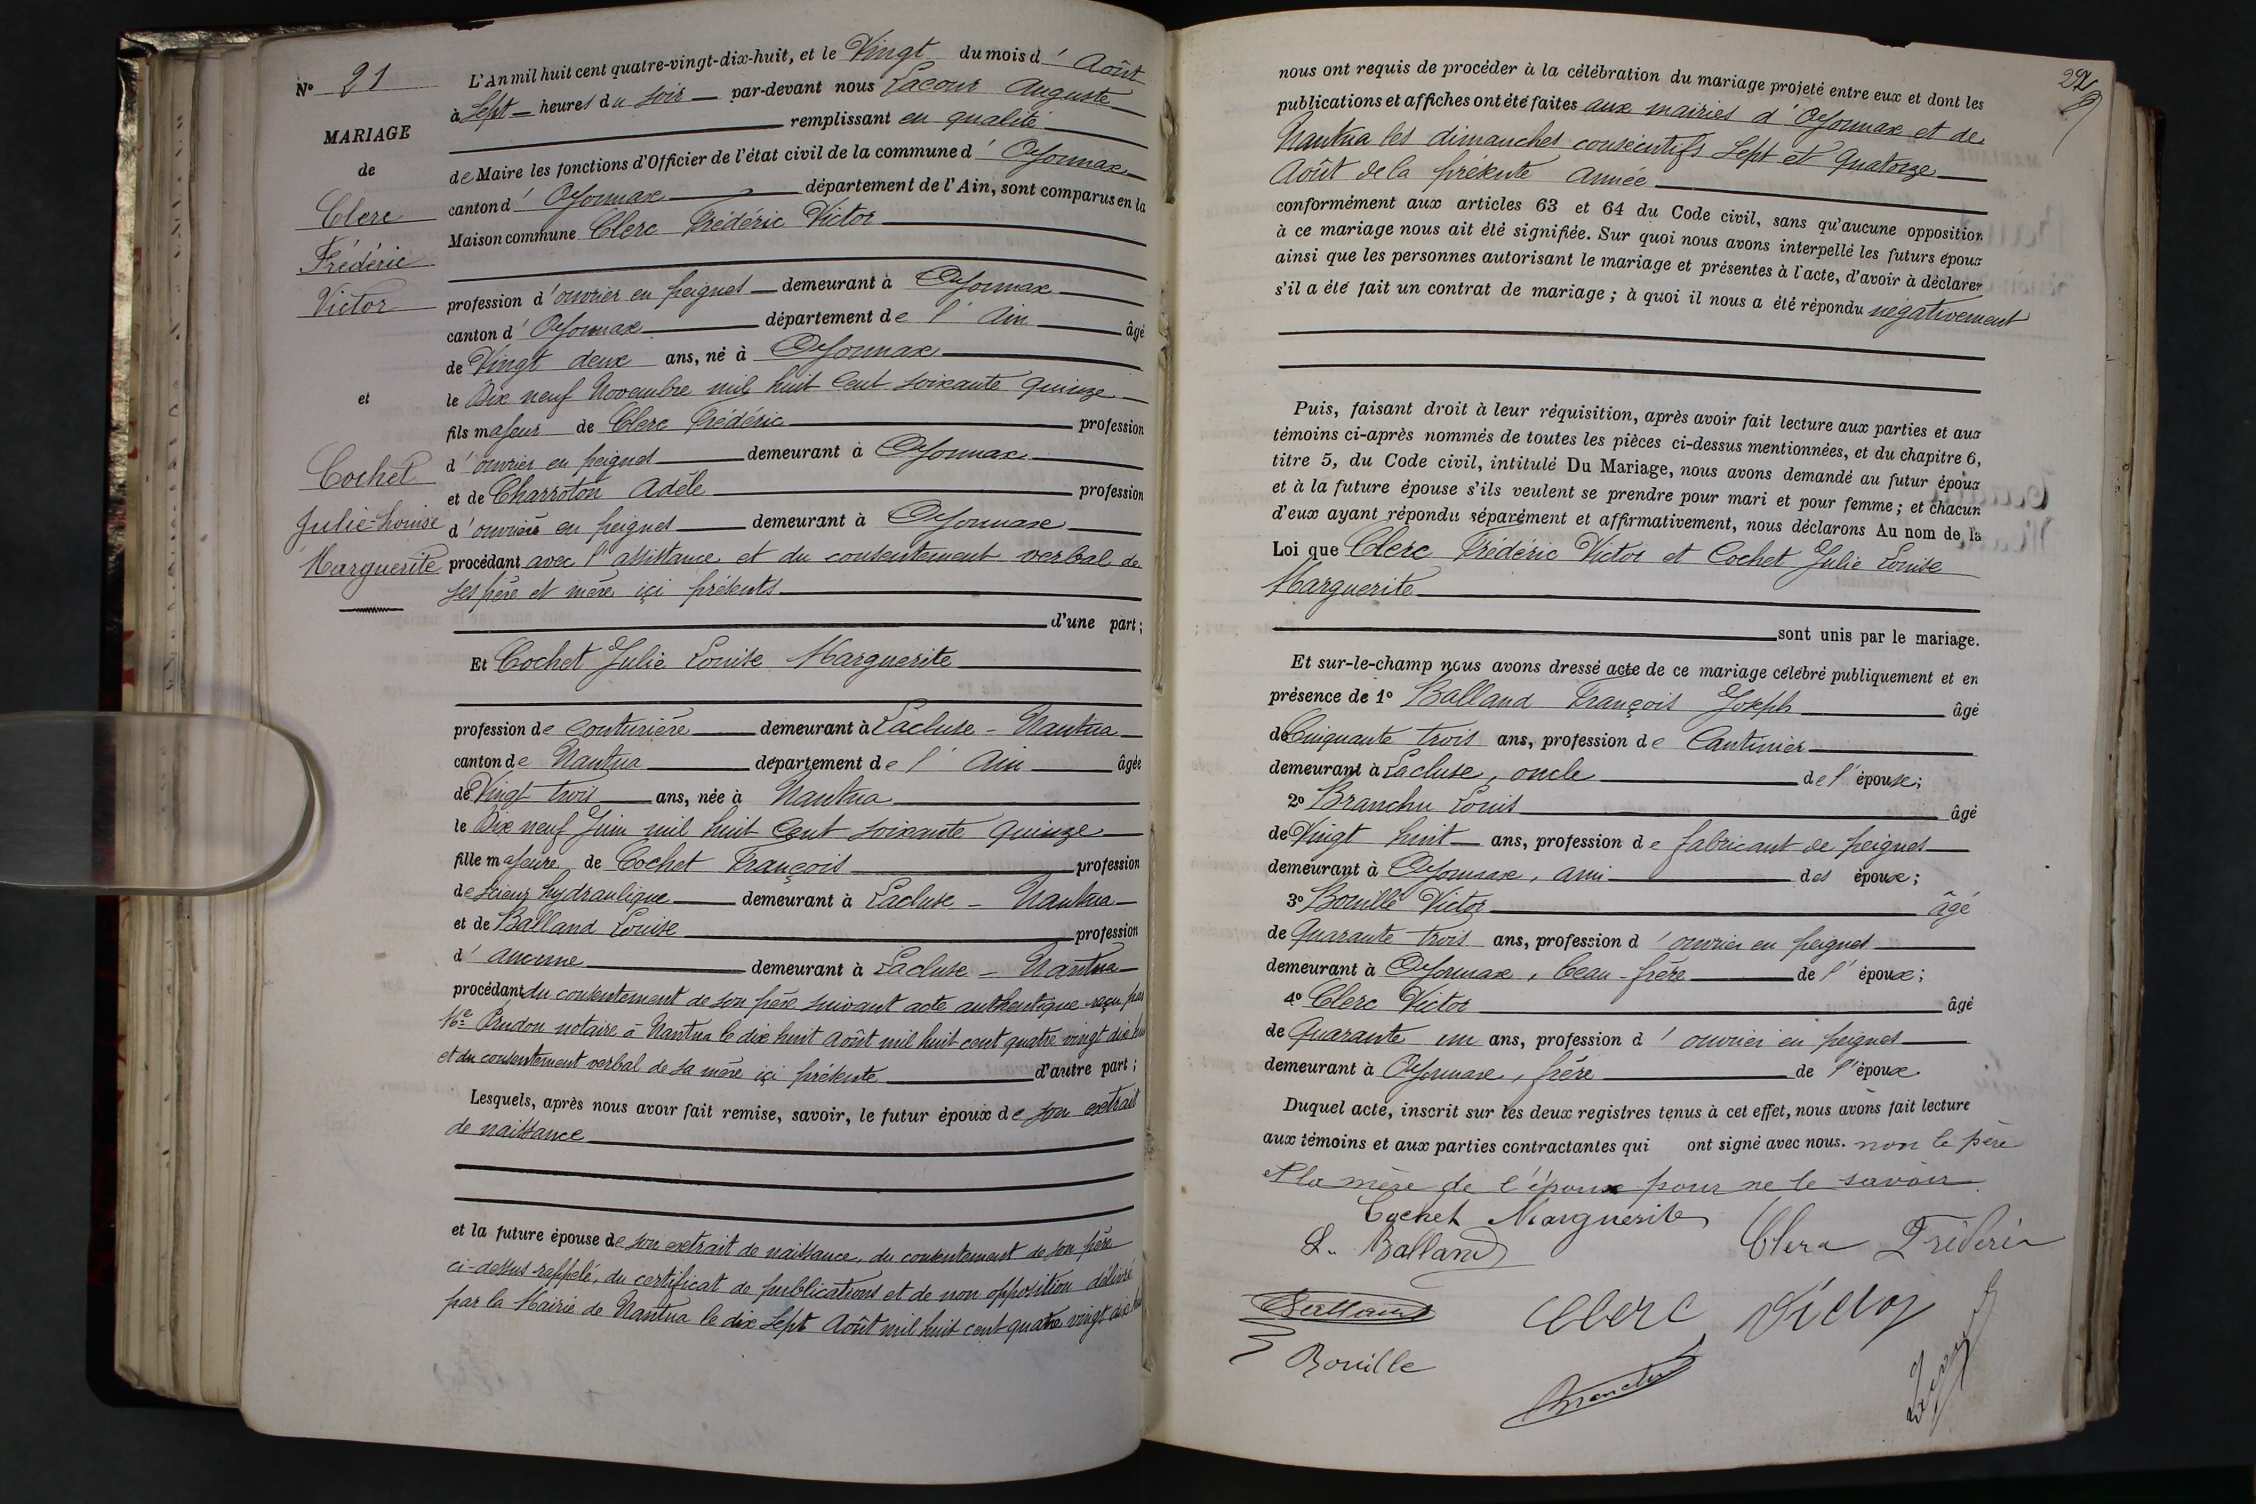 N° 21
MARIAGE
de
Clerc
Frédéric
Victor
et
Cochet
Julie-Louise
Marguerite
L'An mil huit cent quatre-vingt-dix-huit, et le Vingt du mois d' Août
à Sept heures du soir par-devant nous Lacour Auguste
remplissant en qualité
de Maire les fonctions d'Officier de l'état civil de la commune d' Oyonnax
canton d' Oyonnax département de l'Ain, sont comparus en la
Maison commune Clerc Frédéric Victor
profession d'ouvrier en peignes demeurant à Oyonnax
canton d' Oyonnax département de l' Ain âgé
de Vingt deux ans, né à Oyonnax
le Dix neuf Novembre mil huit Cent soixante quinze
fils majeur de Clerc Frédéric profession
d'ouvrier en peignes demeurant à Oyonnax
et de Charroton Adèle profession
d'ouvrière en peignes demeurant à Oyonnax
procédant avec l'assistance et du consentement verbal de
ses père et mère içi présents
d'une part;
Et Cochet Julie Louise Marguerite
profession de couturière demeurant à Lacluse - Nantua
canton de Nantua département de l' Ain âgée
de Vingt trois ans, née à Nantua
le Dix neuf Juin mil huit Cent soixante quinze
fille majeure de Cochet François profession
de scieur hydraulique demeurant à Lacluse - Nantua
et de Balland Louise profession
d' aucune demeurant à Lacluse - Nantua
procédant du consentement de son père suivant acte authentique reçu par
Me Prudon notaire à Nantua le dix huit Août mil huit cent quatre vingt dix huit
et du consentement verbal de sa mère içi présente d'autre part;
Lesquels, après nous avoir fait remise, savoir, le futur époux de son extrait
de naissance
et la future épouse de son extrait de naissance, du consentement de son père
ci-dessus rappelé, du certificat de publications et de non opposition délivré
par la Mairie de Nantua le dix sept Août mil huit cent quatre vingt dix huit
nous ont requis de procéder à la célébration du mariage projeté entre eux et dont les
publications et affiches ont été faites aux mairies d'Oyonnax et de
Nantua les dimanches consécutifs Sept et Quatorze
Août de la présente année
conformément aux articles 63 et 64 du Code civil, sans qu'aucune opposition
à ce mariage nous ait été signifiée. Sur quoi nous avons interpellé les futurs époux
ainsi que les personnes autorisant le mariage et présentes à l'acte, d'avoir à déclarer
s'il a été fait un contrat de mariage; à quoi il nous a été répondu négativement
Puis, faisant droit à leur réquisition, après avoir fait lecture aux parties et aux
témoins ci-après nommés de toutes les pièces ci-dessus mentionnées, et du chapitre 6,
titre 5, du Code civil, intitulé Du Mariage, nous avons demandé au futur époux
et à la future épouse s'ils veulent se prendre pour mari et pour femme; et chacun
d'eux ayant répondu séparément et affirmativement, nous déclarons Au nom de la
Loi que Clerc Frédéric Victor et Cochet Julie Louise
Marguerite
sont unis par le mariage.
Et sur-le-champ nous avons dressé acte de ce mariage célébré publiquement et en
présence de 1° Balland François Joseph âgé
de Cinquante trois ans, profession de Cantinier
demeurant à Lacluse, oncle de l'épouse;
2° Branchu Louis âgé
de Vingt huit ans, profession de fabricant de peignes
demeurant à Oyonnax, ami des époux;
3° Bouillé Victor âgé
de Quarante trois ans, profession d'ouvrier en peignes
demeurant à Oyonnax, beau-frère de l' époux;
4° Clerc Victor âgé
de Quarante un ans, profession d' ouvrier en peignes
demeurant à Oyonnax, frère de l'époux
Duquel acte, inscrit sur les deux registres tenus à cet effet, nous avons fait lecture
aux témoins et aux parties contractantes qui ont signé avec nous. non le père
et la mère de l'époux pour ne le savoir
Cochet Marguerite
L. Balland
Clerc Frédéric
Balland
Clerc Victor
Bouille
Branchu